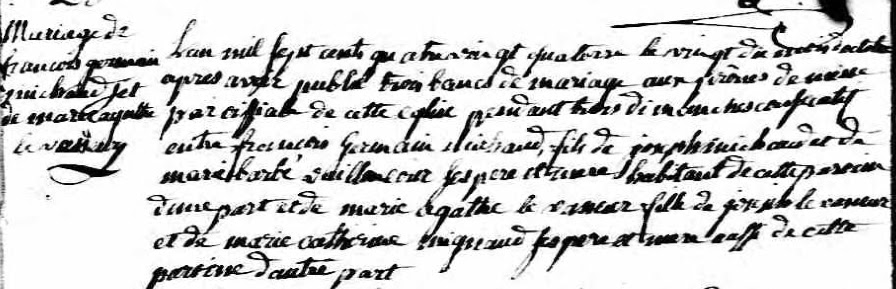 Mariage de
francois germain
michaud et
de marie agathe
le vasseur
Lan mil sept cents quatre vingt quatorze le vingt du mois doctobre
apres avoir publié trois bancs de mariage aux prônes de messe
paroissiale de cette eglise pendant trois dimanches consecutifs
entre francois Germain michaud, fils de joseph michaud et de
marie barbe vaillancour ses pere et mere habitant de cette paroisse
dune part et de marie agathe le vasseur fille de le vasseur
et de marie catherine mignaud ses pere et mere aussi de cette
paroisse dautre part